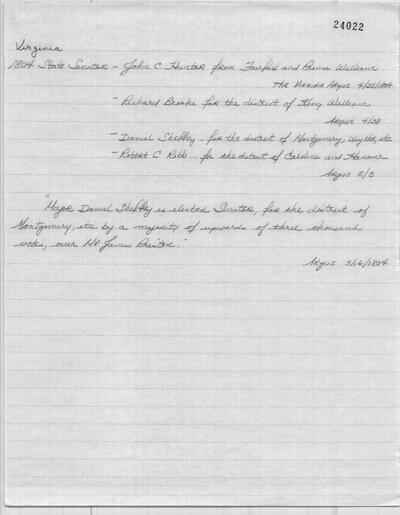 24022
Virginia
1804 State Senator - John C. Hunter from Fairfax and Prince William
The Virginia Argus 4/25/1804
- Richard Brooke for the district of King William
Argus 4/28
- Daniel Sheffey... for the district of Montgomery, Wythe, etc
- Robert C. ... for the district of Caroline and Hanover
Argus 5/3
"Major Daniel Sheffey is elected Senator, for the district of
Montgomery, etc by a majority of upwards of three thousand
votes, over Mr. James Preston."
Argus 5/16/1804